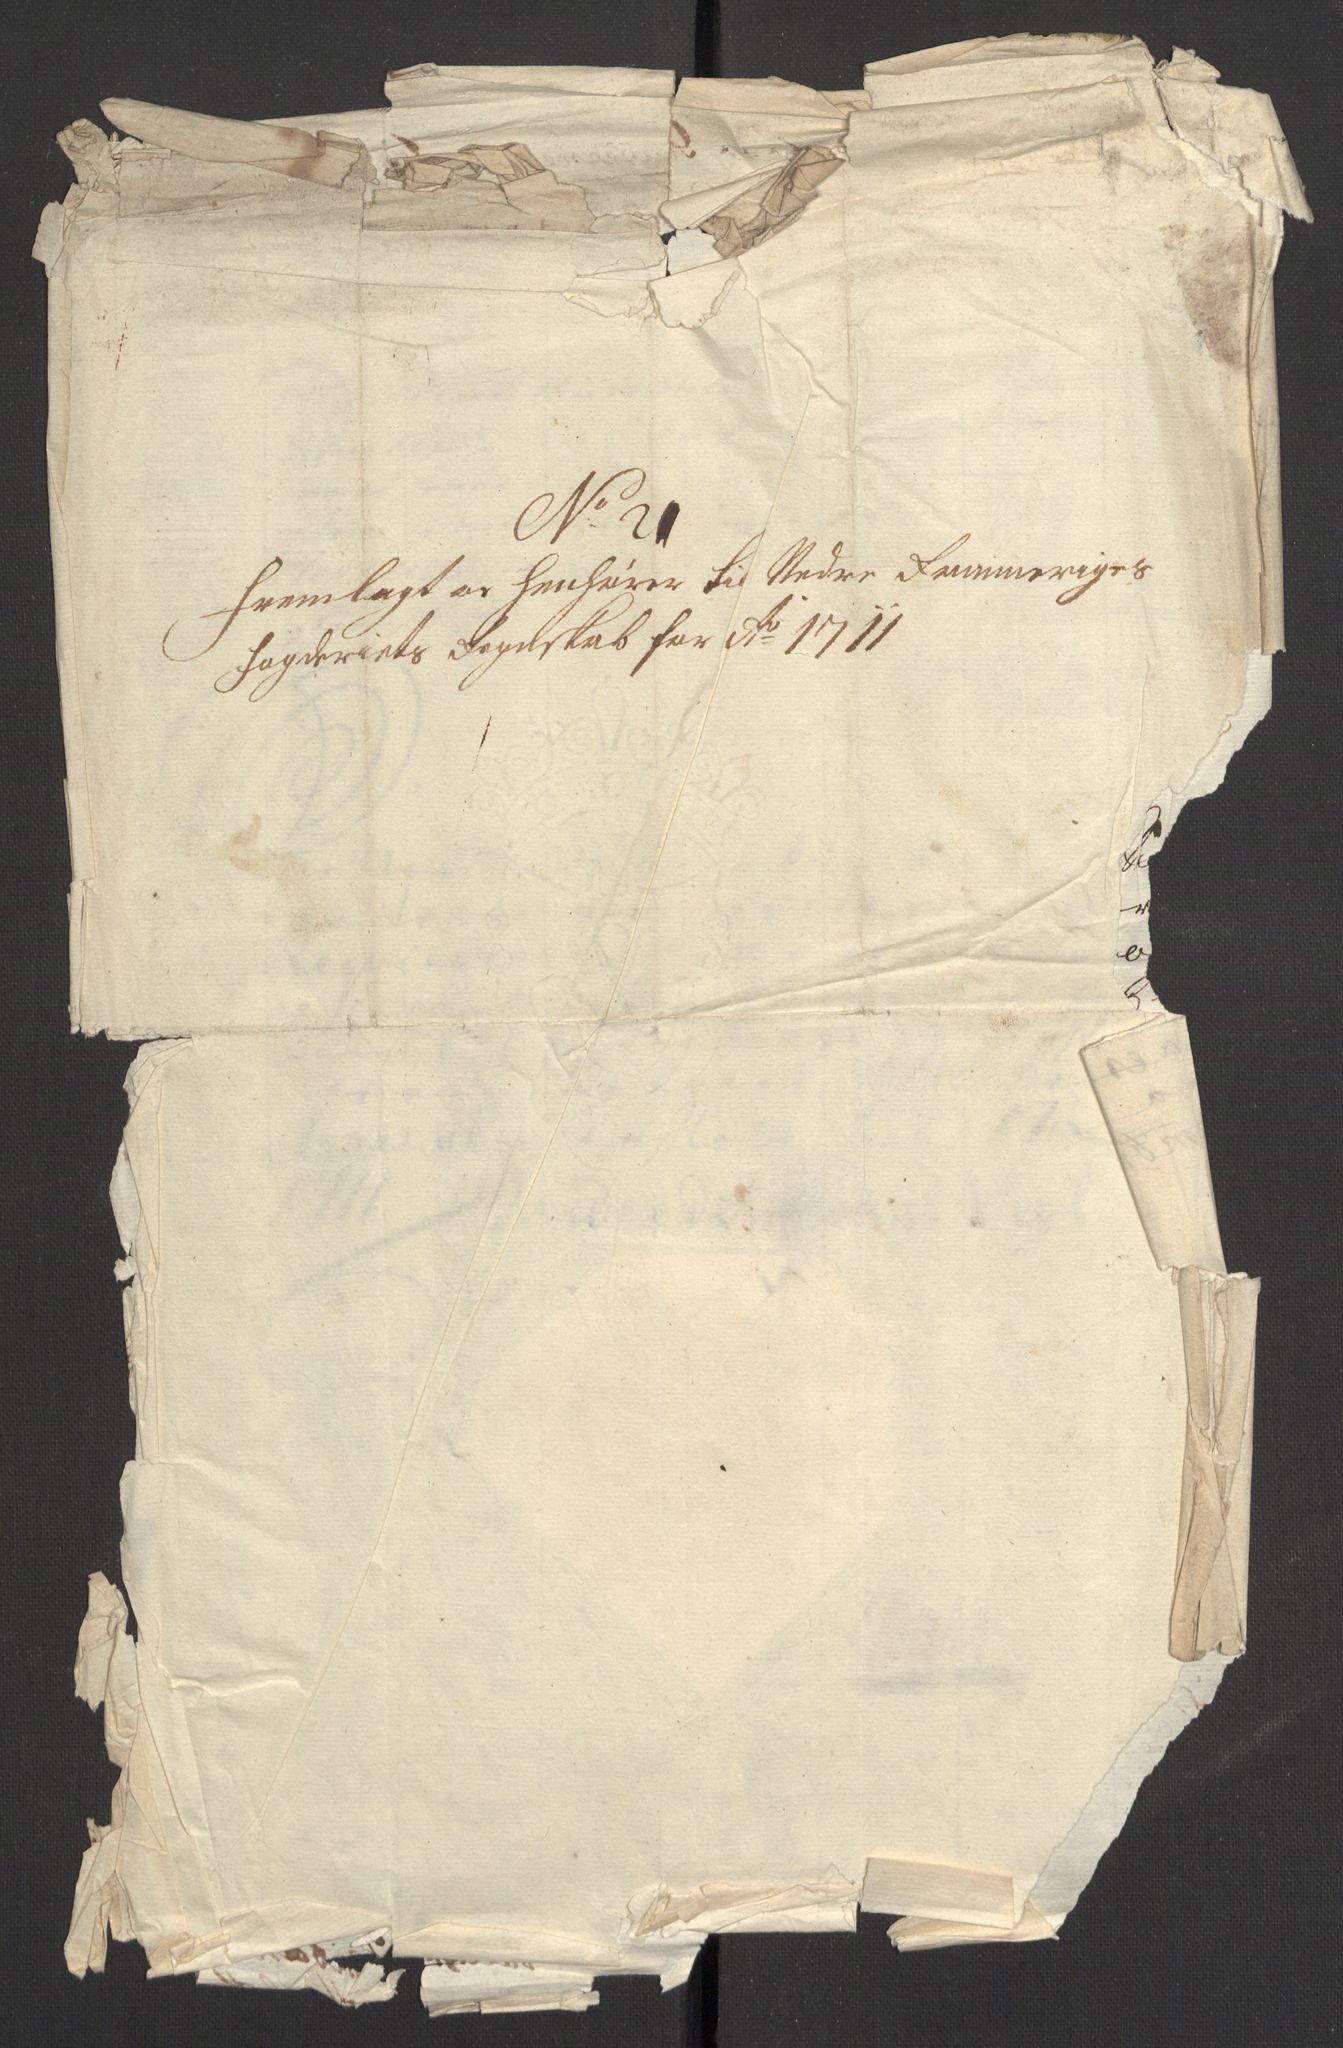 No 21
Fremlagt oc henhörer til Nedre Rommeriges
fogderiets Regnskab for Ao 1711